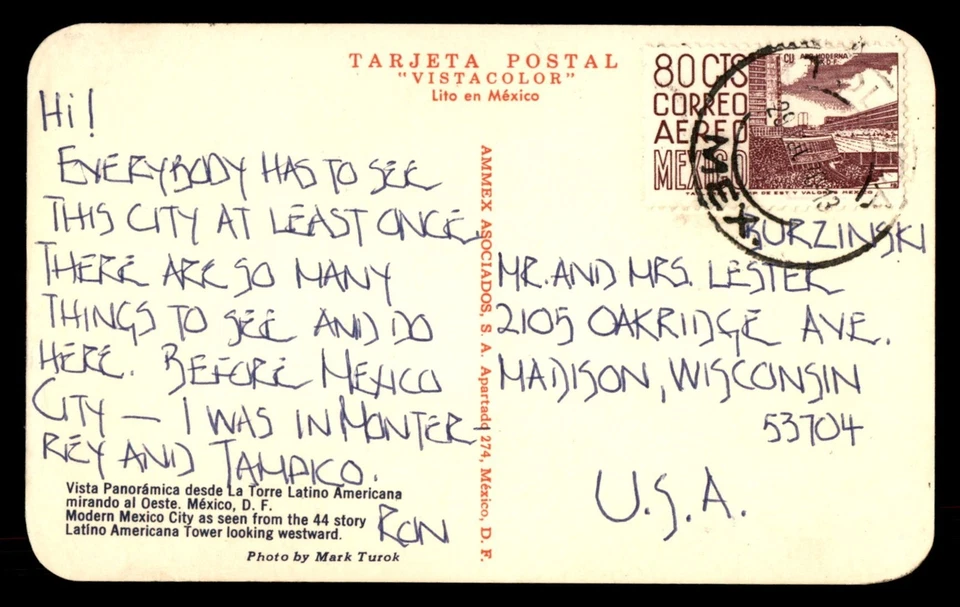 TARJETA POSTAL
"VISTACOLOR"
Lito en México
80 CTS
CORREO
AEREO
MEXICO
CU ARQ MODERNA
MEX.
Hi!
EVERYBODY HAS TO SEE
THIS CITY AT LEAST ONCE.
THERE ARE SO MANY
THINGS TO SEE AND DO
HERE. BEFORE MEXICO
CITY — I WAS IN MONTER-
REY AND TAMPICO.
RON
Vista Panorámica desde La Torre Latino Americana
mirando al Oeste. México, D. F.
Modern Mexico City as seen from the 44 story
Latino Americana Tower looking westward.
Photo by Mark Turok
AMMEX ASOCIADOS, S. A. Apartado 274, México, D. F.
BURZINSKI
MR. AND MRS. LESTER
2105 OAKRIDGE AVE.
MADISON, WISCONSIN
53704
U.S.A.